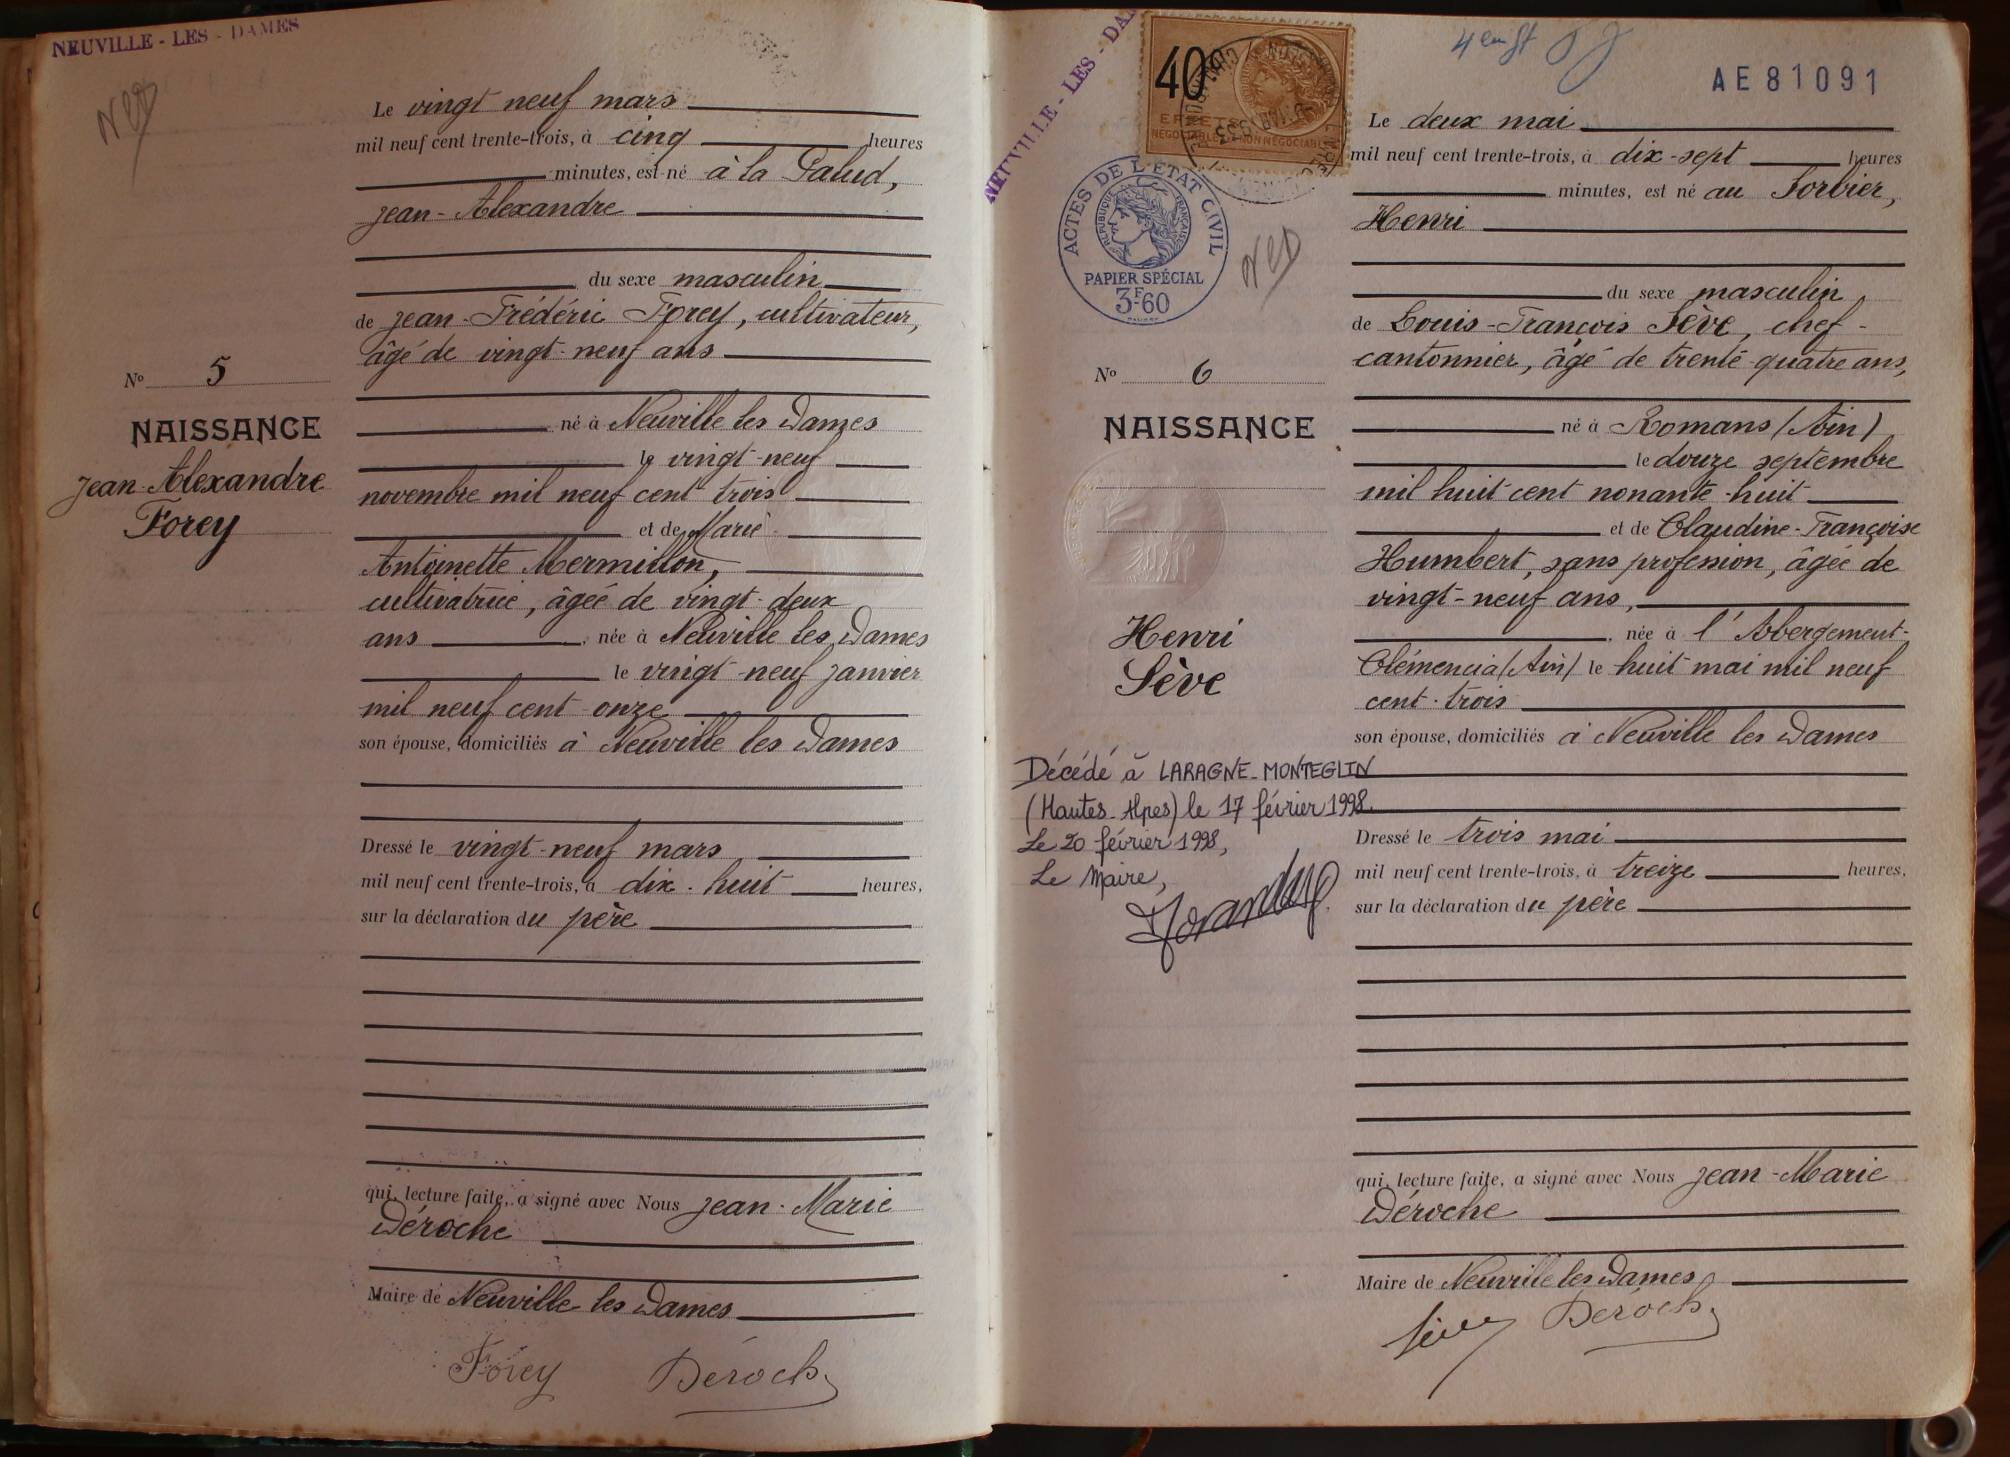 NEUVILLE - LES - DAMES
Le vingt neuf mars
mil neuf cent trente-trois, à cinq heures
minutes, est né à la Palud,
Jean-Alexandre
du sexe masculin
de Jean-Frédéric Forey, cultivateur,
âgé de vingt-neuf ans
né à Neuville les Dames
le vingt-neuf
novembre mil neuf cent trois
et de Marie
Antoinette Mermillon,
cultivatrice, âgée de vingt-deux
ans née à Neuville les Dames
le vingt-neuf janvier
mil neuf cent onze
son épouse, domiciliés à Neuville les Dames
Dressé le vingt-neuf mars
mil neuf cent trente-trois, à dix-huit heures,
sur la déclaration du père
qui, lecture faite, a signé avec Nous Jean-Marie
Déroche
Maire de Neuville les Dames
Forey Déroche
No 5
NAISSANCE
Jean-Alexandre
Forey
NEUVILLE - LES - DA
40
EFFETS
NÉGOCIABLES NON NÉGOCIABLES
ACTES DE L'ÉTAT CIVIL
RÉPUBLIQUE FRANÇAISE
PAPIER SPÉCIAL
3F60
AE81091
Le deux mai
mil neuf cent trente-trois, à dix-sept heures
minutes, est né au Sorbier,
Henri
du sexe masculin
de Louis-François Sève, chef-
cantonnier, âgé de trente-quatre ans,
né à Romans (Ain)
le douze septembre
mil huit cent nonante-huit
et de Claudine-Françoise
Humbert, sans profession, âgée de
vingt-neuf ans,
née à l'Abergement-
Clémencia (Ain) le huit mai mil neuf
cent-trois
son épouse, domiciliés à Neuville les Dames
Dressé le trois mai
mil neuf cent trente-trois, à treize heures,
sur la déclaration du père
qui, lecture faite, a signé avec Nous Jean-Marie
Déroche
Maire de Neuville les Dames
Sève Déroche
No 6
NAISSANCE
Henri
Sève
Décédé à LARAGNE-MONTEGLIN
(Hautes-Alpes) le 17 février 1998.
Le 20 février 1998,
Le Maire,